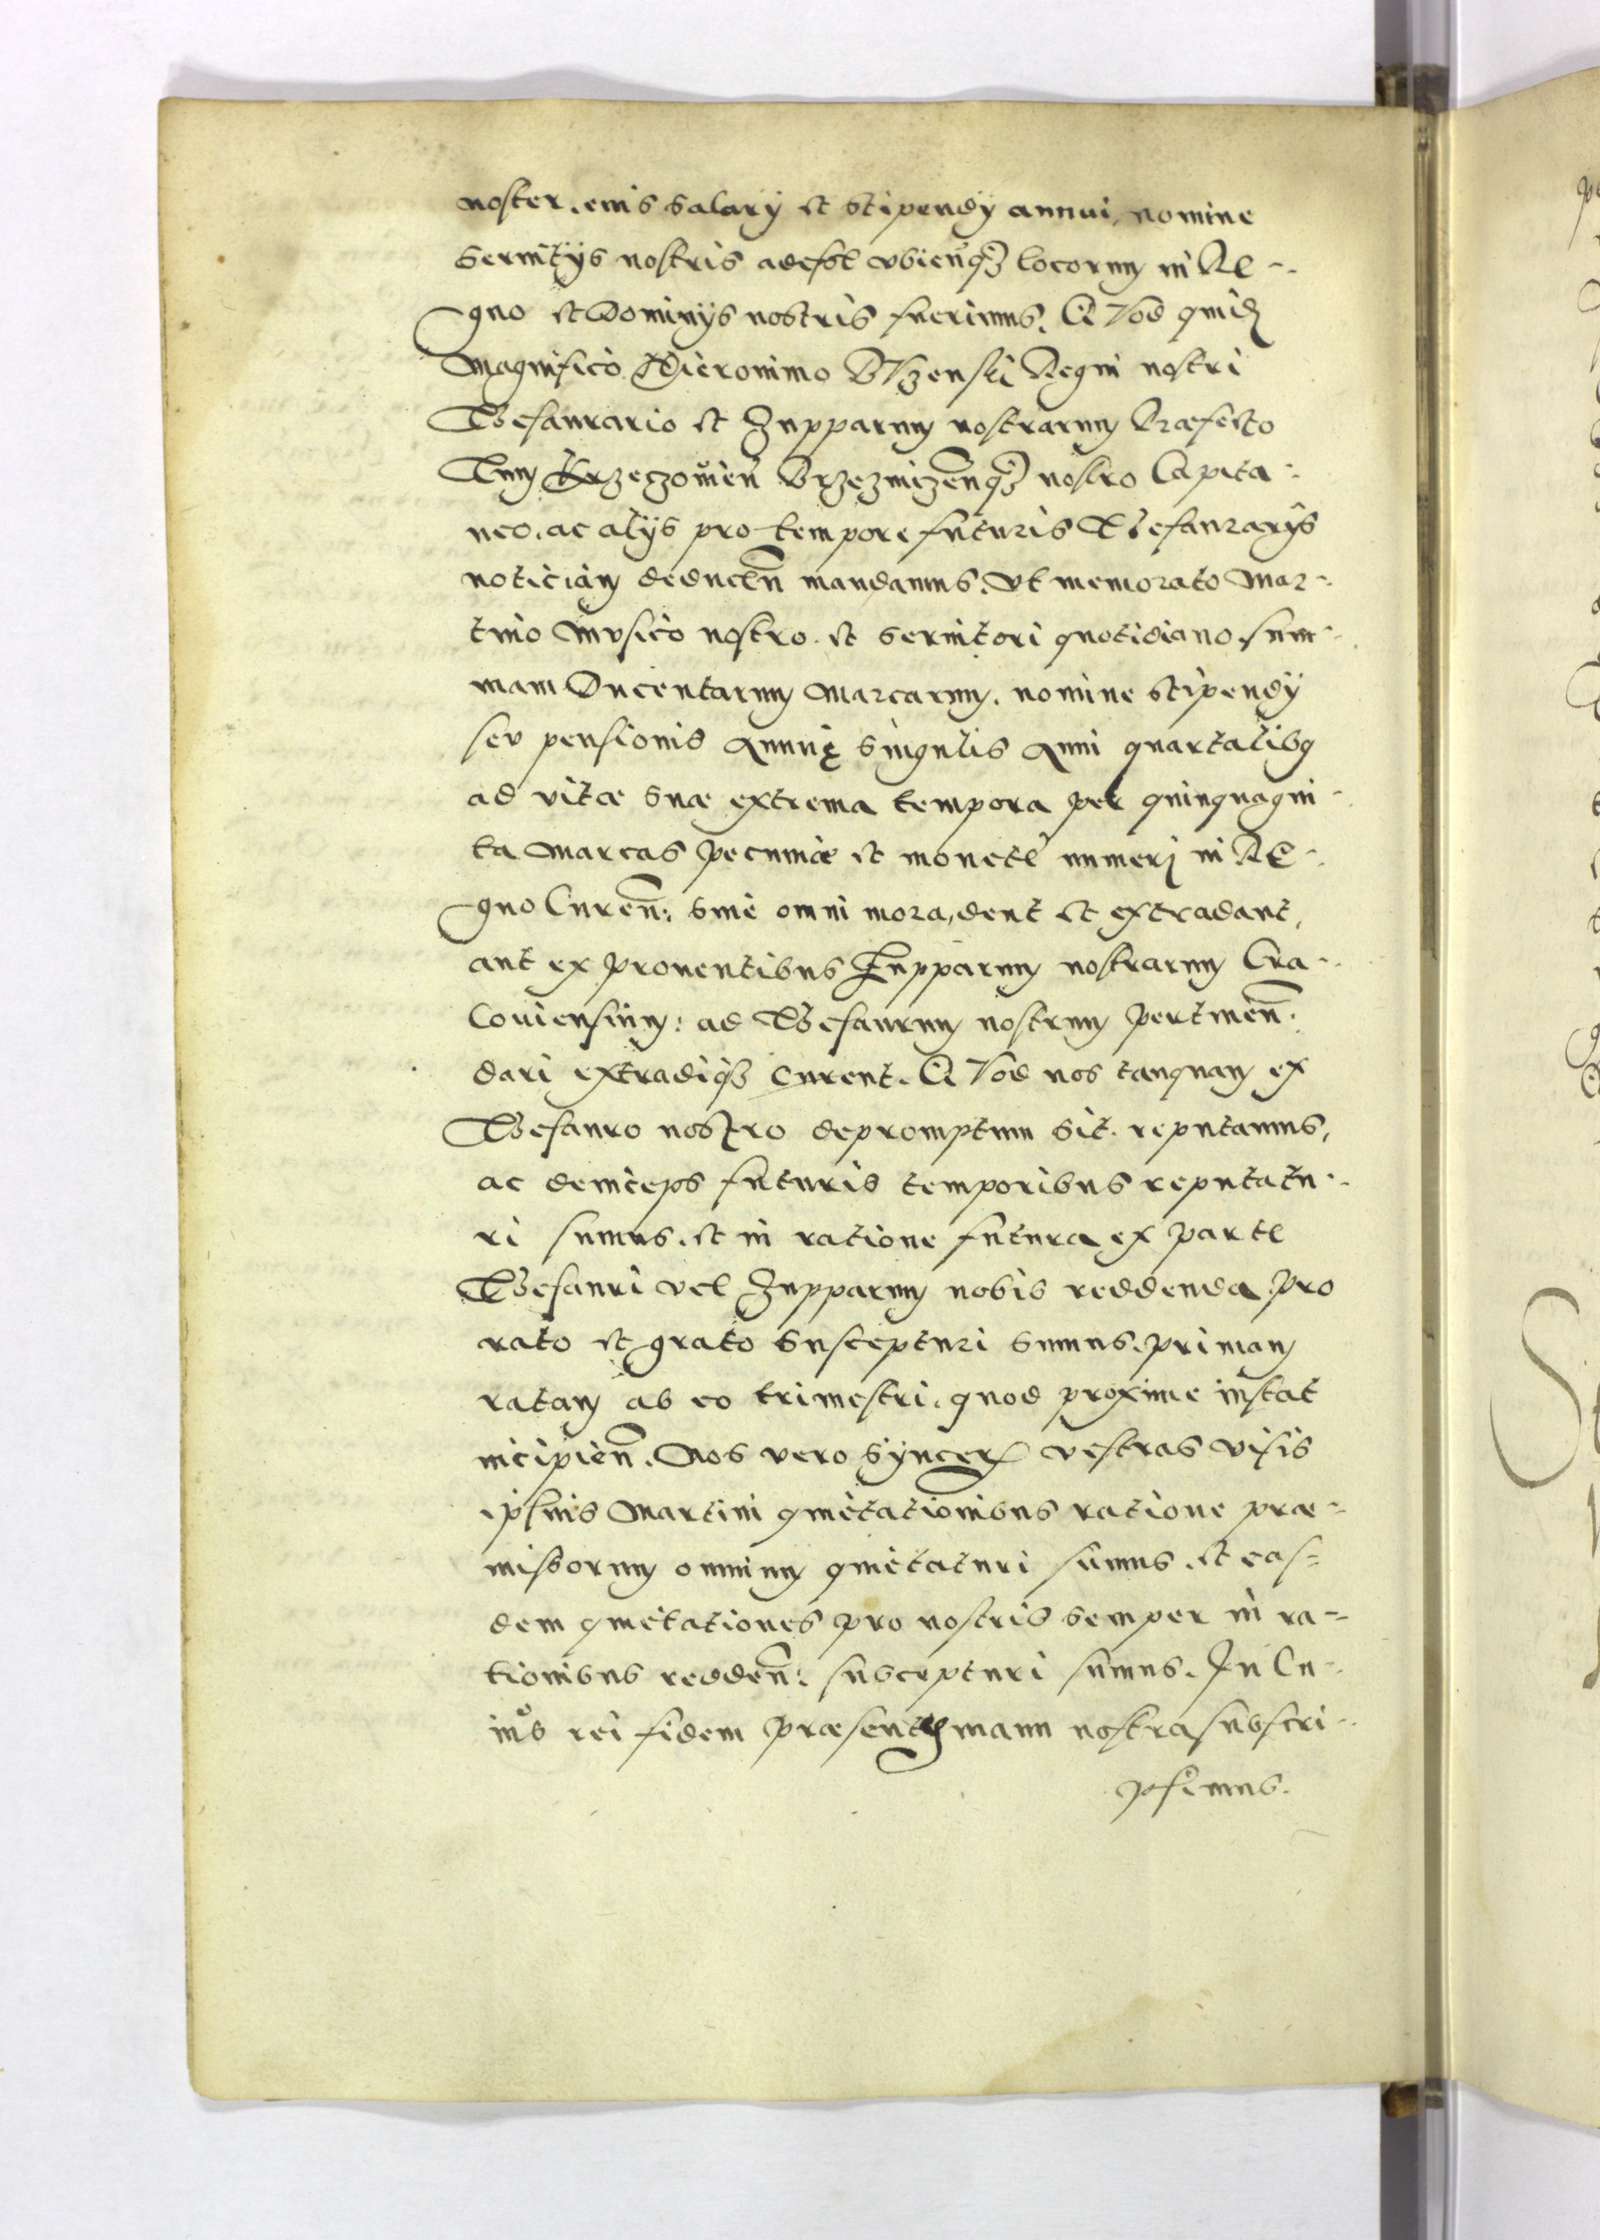 noster. eius Salarÿ et Stipendÿ annui, nomine
Seruitÿs nostris adesse vbicunqꝫ locorum in Re-
gno et Dominÿs nostris fuerimus. QVod quidem
Magnifico Hieronimo BVzenski Regni nostri
Thesaurario et Zupparum nostrarum Præfecto
Tum Krzeczouien Brzeznizenqꝫ nostro Capita-
neo. ac alÿs pro tempore futuris Thesaurarÿs
noticiam deducen mandamus. Vt memorato Mar-
tino Mvsico nostro. et Seruitori quotidiano. sum-
mam Ducentarum Marcarum. nomine Stipendÿ
sev pensionis Annuę Singulis Anni quartalibus
ad vitæ Suæ extrema tempora per quinquagin-
ta Marcas pecuniæ et monete numeri in Re-
gno Curen: Sine omni mora, dent et extradant,
aut ex prouentibus Zupparum nostrarum Cra-
Couiensium: ad Thesaurum nostrum pertinen:
dari extradiqꝫ curent. QVod nos tanquam ex
Thesauro nostro depromptum Sit. reputamus,
ac deinceps futuris temporibus reputatu-
ri sumus. et in ratione futura ex parte
Thesauri vel Zupparum nobis reddenda. pro
rato et grato Suscepturi Sumus. primam
ratam ab eo trimestri. quod proxime instat
incipien. Nos vero Sÿncer vestras visis
ipsius Martini quietationibus ratione præ-
missorum omnium quietaturi sumus. et eas-
dem quietationes pro nostris Semper in ra-
tionibus redden: suscepturi sumus. In Cu-
ius rei fidem præsentes manu nostra subscri-
psimus.